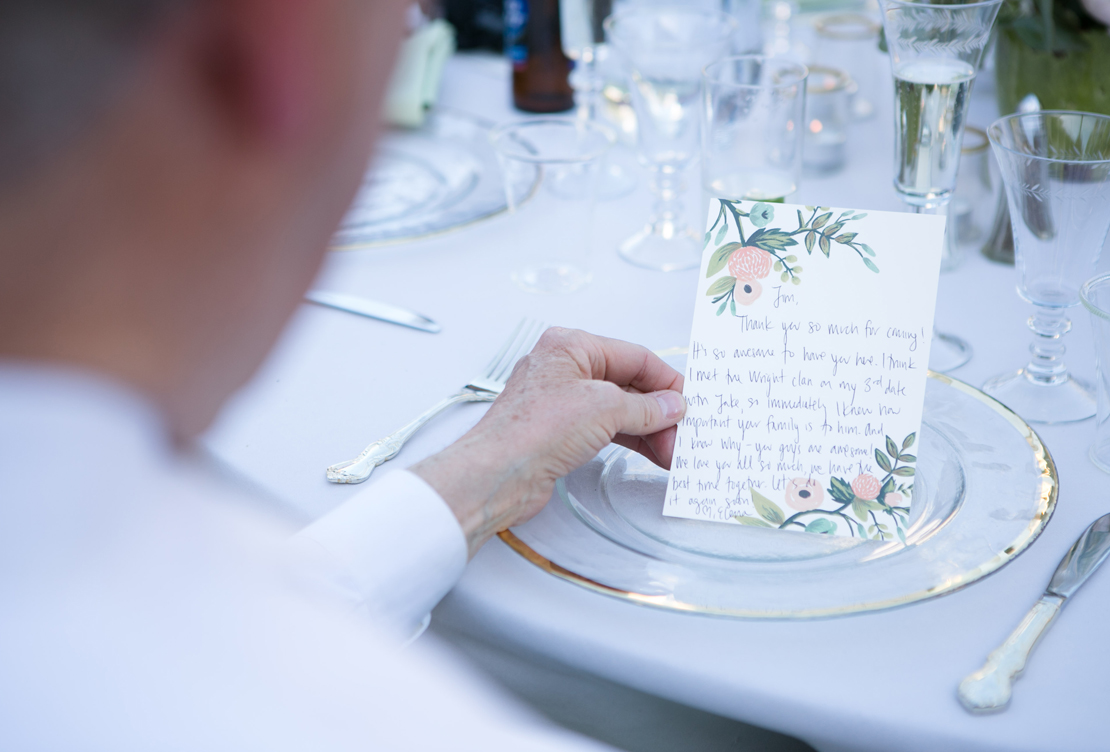 Jim,
Thank you so much for coming!
It's so awesome to have you here. I think
I met the Wright clan on my 3rd date
with Jake, so immediately I knew how
important your family is to him. and
I know why - you guys are awesome!
We love you all so much, we have the
best time together. Let's do
it again soon